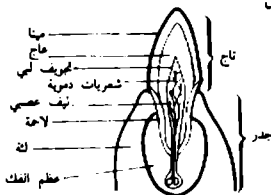 مينا
عاج
تجويف لبي
شعريات دموية
ليف عصبي
لاحمة
لثة
عظم الفك
تاج
جذر